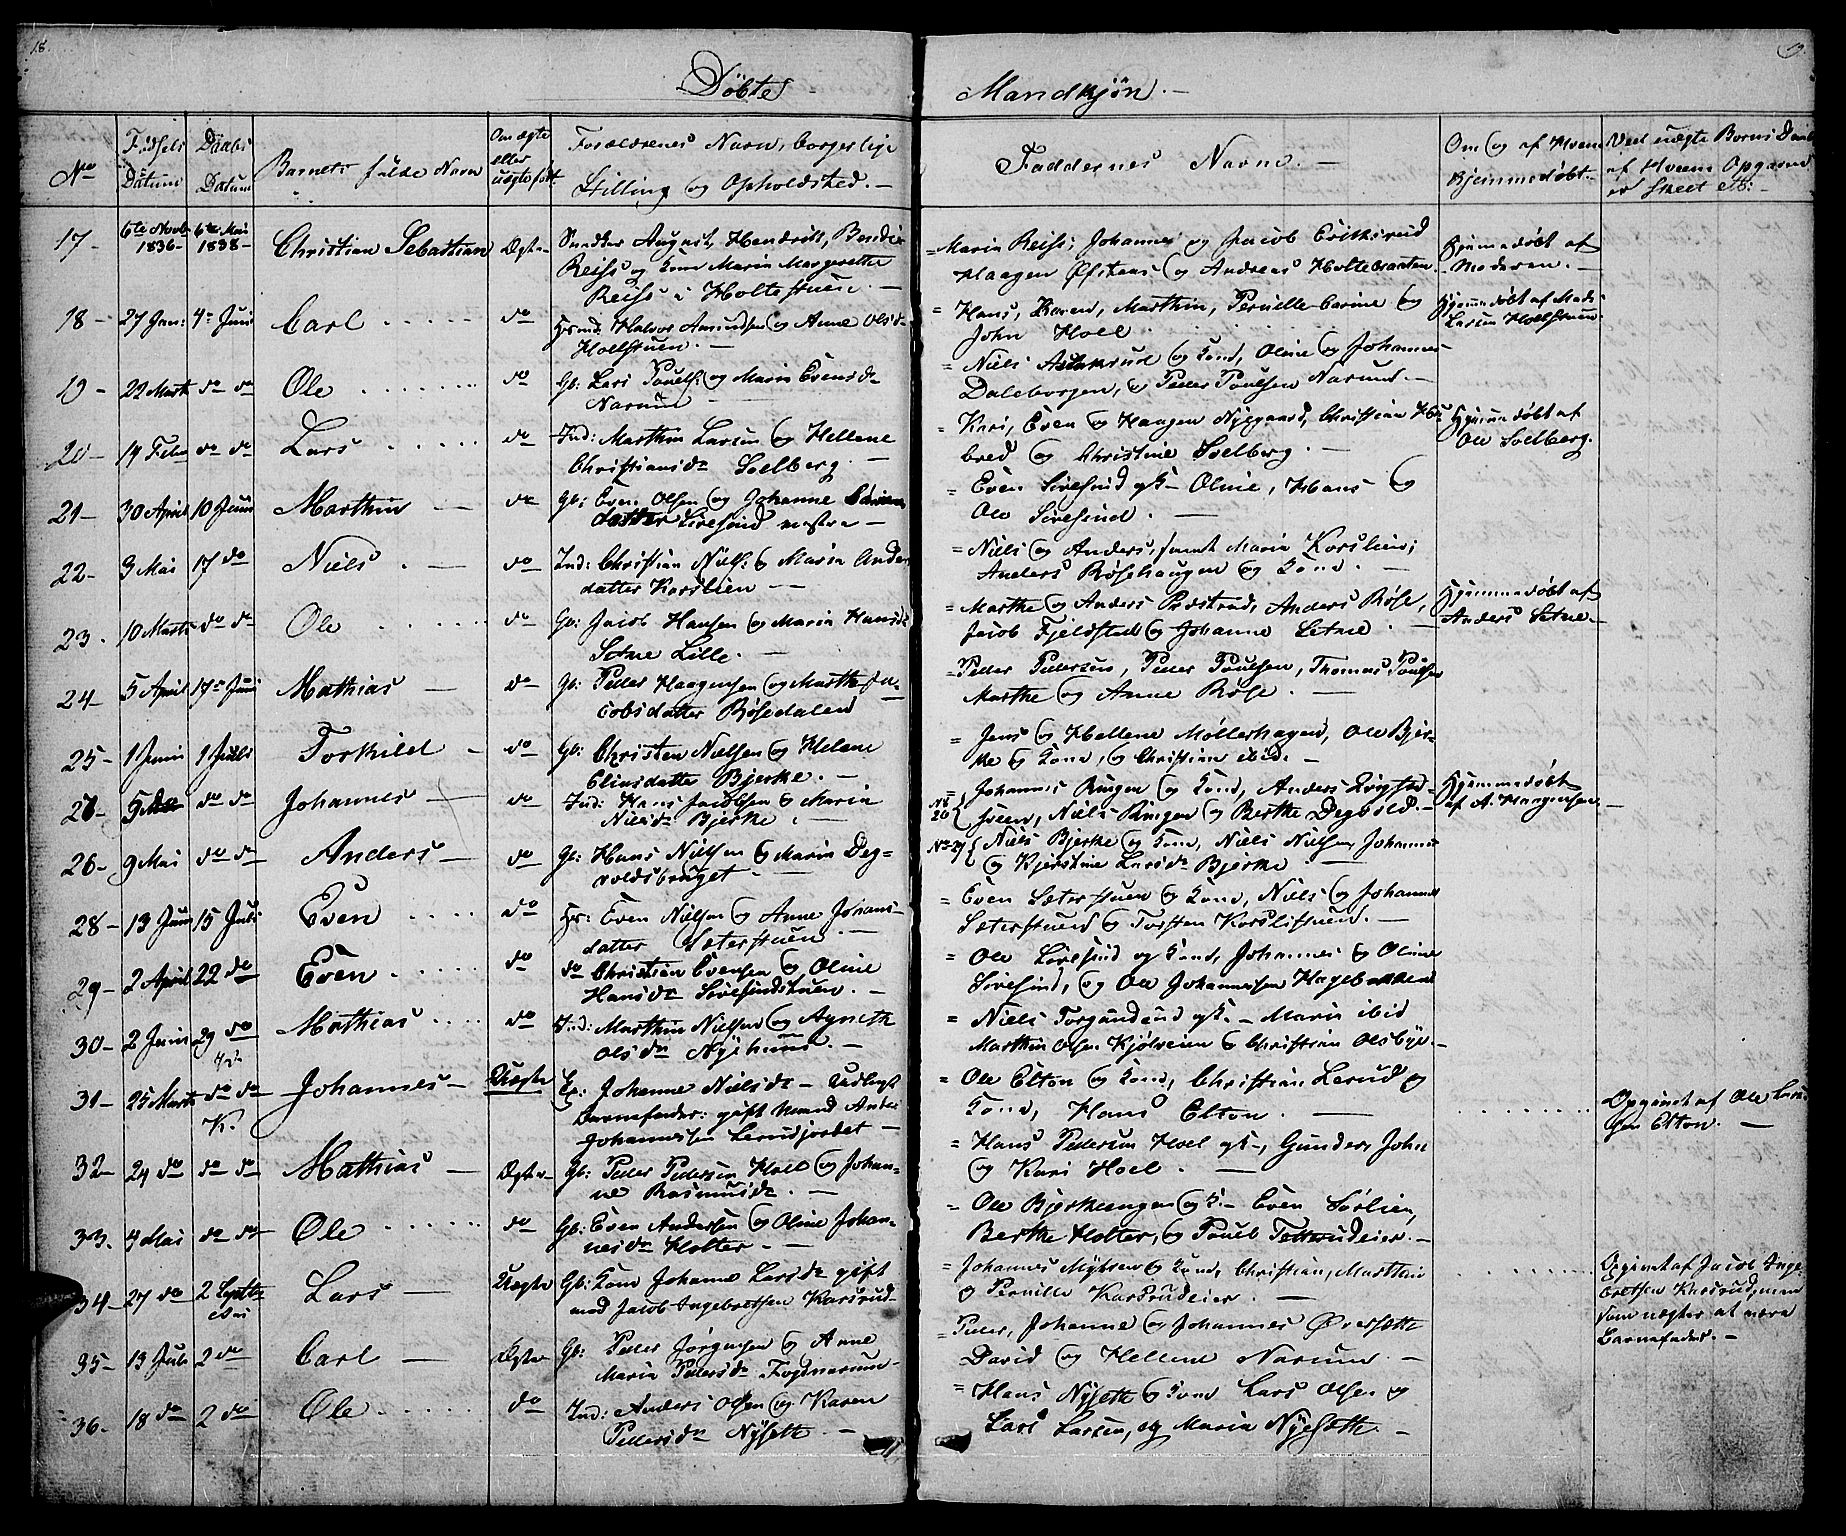 18.
Döbte
Mandkjön.
No
Födsels Datum
Daabs Datum
Barnets fulde Navn
Om ægte eller uægte föd.
Forældrenes Navn, borgerlige
Stilling og Opholdsted.
Faddernes Navne.
Om og af Hvem Hjemmedöbt.
Ved uægte Börns Daab af Hvem Opgaven er Skeet etc:
17 - 6te Novb 1836 - 6te Mai 1838 - Christian Sebastian Ægte August Hendrik
Reiss og Kone Maria Margrethe
Reiss i Holtestuen.
= Maria Reiss, Johannes og Jacob Eriksrud
Haagen Østaas og Andreas Holtebraaten
Hjemmedöbt af
Moderen.
18 - 27 Jan: 4de Juni Carl do Huusmd: Halvor Amundsen og Anne Olsdr
Hoelstuen.
= Hans, Karen, Marthin, Pernille Carine og
John Hoel
Hjemmedöbt af Mads
Larsen Hoelstuen.
19 - 22 Marts do do Ole do Gb: Lars Pouels: og Marie Evensdr
Narum
= Niels og Kone, Oline og Johannes
Daleborgen, og Peder Poulsen Narum.
20 - 14 Febr do do Lars do Ind: Marthin Larsen og Hellene
Christiansdr Soelberg.
= Kari, Even og Haagen Nygaard, Christian
bred og Christine Soelberg.
Hjemmedöbt af
Ole Soelberg.
21 - 30 April 10 Juni Marthin do Gb: Even Olsen og Johanne
datter Sivesind nestre
= Even Sivesind og K. Oline, Hans og
Ole Sivesind.
22 - 3 Mai 17 do Niels do Ind: Christian Niels: og Maria Anders
datter Korslien
= Niels og Anders, samt Maria Korslien;
Anders Røsehaugen og Kone.
23 - 10 Marts do do Ole do Gb: Jacob Hansen og Maria Hansdr
Sætne Lille.
= Marthe og Anders Prestrud, Anders Røse,
Jacob Fjeldstad og Johanne Setne.
Hjemmedöbt af
Anders Setne
24 - 5 April 17de Juni Mathias do Gb: Peder Haagensen og Marthe Ja-
cobsdatter Røsedalen
= Peder Pedersen, Peder Poulsen, Thomas Poulsen
Marthe og Anne Røse.
25 - 1 Juni 1 Juli Torkild do Gb: Christen Nielsen og Helene
Eliasdatter Bjerke.
= Jens og Hellene Møllerhagen, Ole Bjer-
ke og Kone, og Christian ibid.
26 - 5 do do Johannes do Ind: Hans Jacobsen og Maria
Nielsdr Bjerke.
No 26 { = Johannes Ringen og Kone, Anders
Niels Ringen og Berthe Degvold.
Hjemmedöbt
af A. Haagensen
26 - 9 Mai do do Anders do Gb: Hans Nielsen og Maria Deg-
voldsbraget.
No 27 { = Niels Bjerke og Kone, Niels Nielsen, Johannes
og Kjerstine Larsdr Bjerke
28 - 13 Juni 15 Juli Even do Hs: Even Nielsen og Anne Johans-
datter Sæterstuen.
= Even Sæterstuen og Kone, Niels og Johannes
Sæterstuen og Torsten Korslistuen.
29 - 2 April 22 do Even do do Christian Evensen og Oline
Hansdr Sivesindstuen.
= Ole Sivesind og Kone, Johannes og Oline
Sivesind, og Ole Johannesen Hagebakken
30 - 2 Juni 29 do Mathias do Ind: Marthin Nielsen og Agneth
Olsdr Nyehuus.
= Niels og K. Maria ibid
Marthin Olsen Kjölveien og Christian Olsbye.
31 - 25 Marts do do Johannes Uægte Johanne Nielsdr - Udlagt
Barnefader: gift Mand Anders
Johannesen Lerudjordet
= Ole Elton og Kone, Christian Lerud og
Kone, Hans Elton.
Opgivet af Ole Lar-
sen Elton.
32 - 24 do do do Mathias Ægte Gb: Peder Pedersen Hoel og Johan-
ne Rasmusdr.
= Hans Pedersen Hoel og K., Gunder, John
og Kari Hoel.
33 - 4 Mai do do Ole do Gb: Even Andersen og Oline Johan-
nesdr Holter.
= Ole Bjerkeengen og K. Even Sørlien,
Berthe Holter, og Pouel
34 - 27 do 2 Septbr Lars Uægte Gb: Kone Johanne Larsdr gift
med Jacob Ingebretsen Karsrud
= Johannes og Kone, Christian, Marthin
og Pernille Karsrudeier.
Opgivet af Jacob Inge-
bretsen Karsrud, men
som nægter at være
Barnefader.
35 - 13 Juli 2 do Carl Ægte Gb: Peder Jørgensen og Anne
Maria Pedersdr Fogdnarum
= Peder, Johanne og Johannes Øversætte
David og Hellene Narum.
36 - 18 do 2 do Ole do Ind: Anders Olsen og Karen
Pedersdr Nysett
= Hans Nysett og Kone Lars Olsen og
Lars Larsen, og Maria Nyesætt.